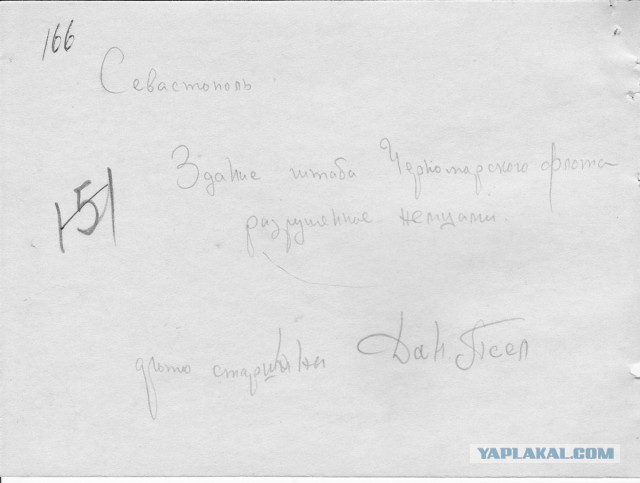 166
Севастополь
Здание штаба Черноморского флота
151
разрушенное немцами.
фото старшины
YAPLAKAL.COM